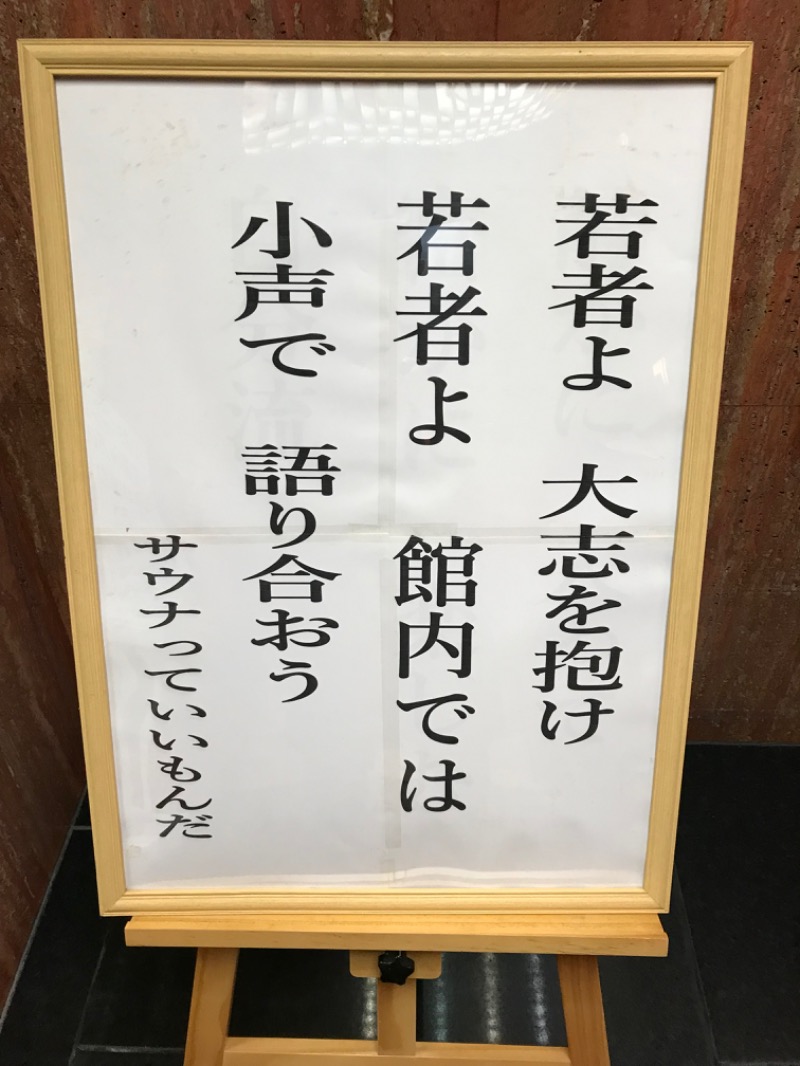 若者よ　大志を抱け
若者よ　館内では
小声で　語り合おう
サウナっていいもんだ